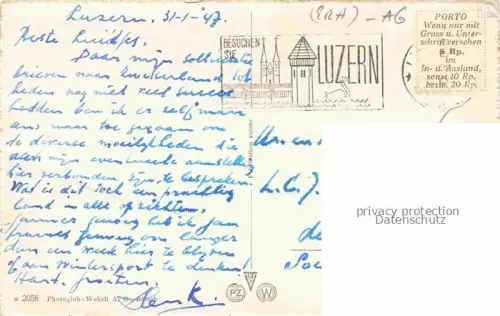 Luzern, 31-1-'47.
(ERH) - AG
Beste Luidjes,
Daar mijn sollicitatie
brieven naar Zwitserland tot
heden nog niet veel succes
hadden ben ik er zelf maar
eens naar toe gegaan om
de diverse moeilijkheden die
aan mijn eventuele aanstelling
hier verbonden zijn, te bespreken.
Wat is dit toch een prachtig
land in alle opzichten.
Jammer genoeg heb ik geen
francs genoeg om langer
dan een week hier te blijven
of aan wintersport te denken!
Hart. groeten.
Henk.
BESUCHEN
SIE
LUZERN
PORTO
Wenn nur mit
Gruss u. Unter-
schrift versehen
5 Rp.
im
In- u. Ausland,
sonst 10 Rp.
bezw. 20 Rp.
L.C.J.
privacy protection
Datenschutz
a 2058 Photoglob-Wehrli A.
PZ W